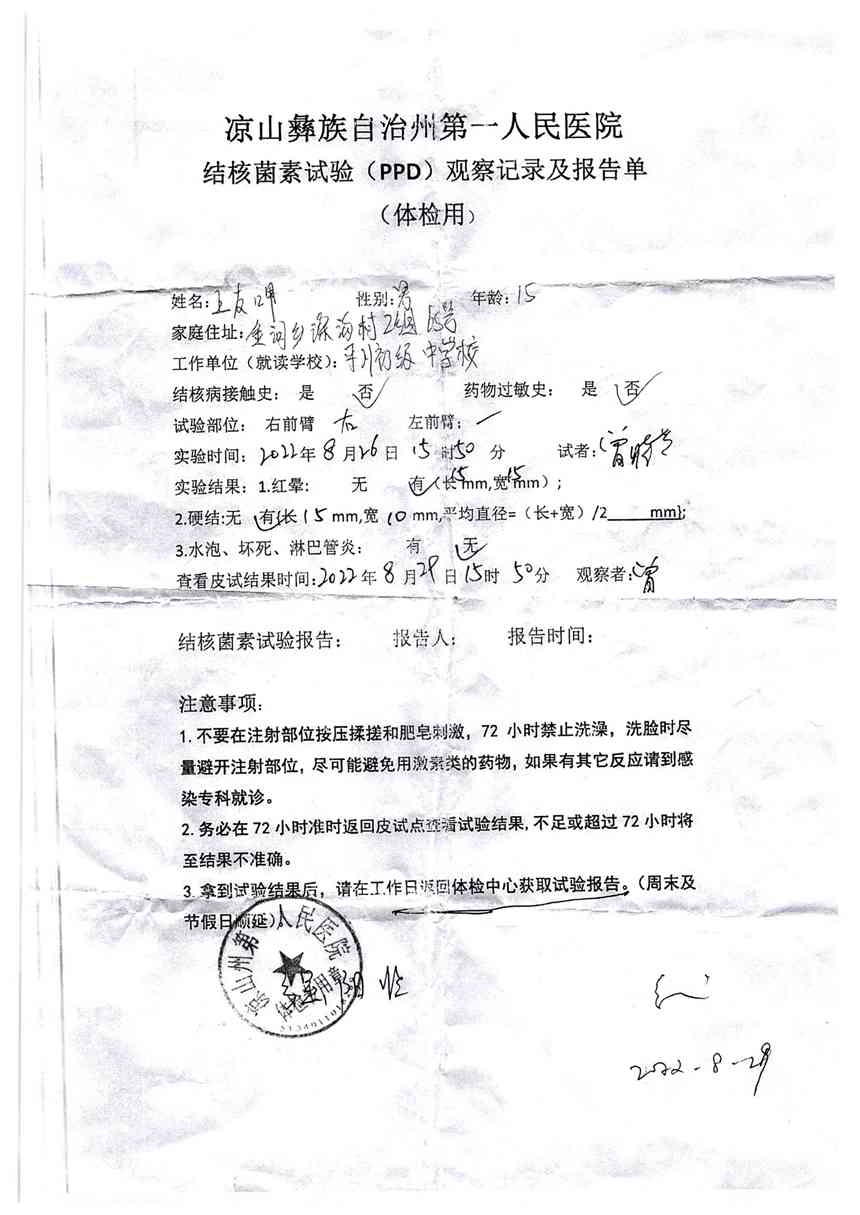 凉山彝族自治州第一人民医院
结核菌素试验（PPD）观察记录及报告单
（体检用）
姓名：王友 性别：男 年龄：15
家庭住址： 乡 村2组 号
工作单位（就读学校）： 初级中学校
结核病接触史： 是 否 药物过敏史： 是 否
试验部位： 右前臂 右 左前臂：一
实验时间：2022年8月26日15时50分 试者：曾
实验结果：1.红晕： 无 有（长15mm,宽15mm）；
2.硬结:无 有(长15mm,宽10mm,平均直径=（长+宽）/2 mm);
3.水泡、坏死、淋巴管炎： 有 无
查看皮试结果时间:2022年8月29日15时50分 观察者:曾
结核菌素试验报告： 报告人： 报告时间：
注意事项：
1.不要在注射部位按压揉搓和肥皂刺激，72 小时禁止洗澡，洗脸时尽
量避开注射部位，尽可能避免用激素类的药物，如果有其它反应请到感
染专科就诊。
2.务必在 72 小时准时返回皮试点查看试验结果,不足或超过 72 小时将
至结果不准确。
3.拿到试验结果后，请在工作日返回体检中心获取试验报告。（周末及
节假日顺延）
凉山州第一人民医院
阳性
2022-8-29